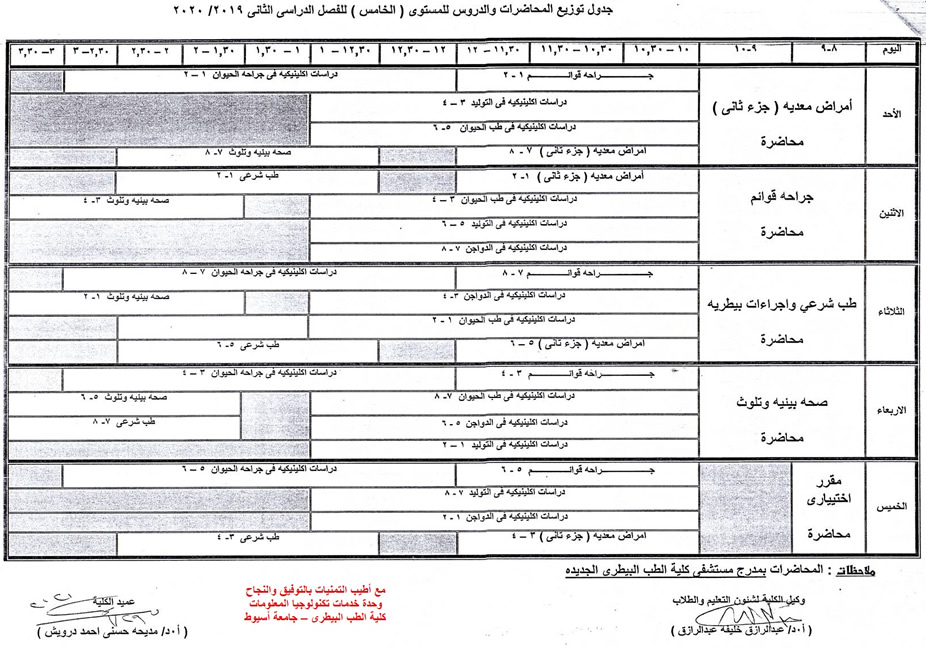 جدول توزيع المحاضرات والدروس للمستوى ( الخامس ) للفصل الدراسى الثانى ٢٠١٩/ ٢٠٢٠
اليوم ٨-٩ ٩-١٠ ١٠-١٠,٣٠ ١٠,٣٠-١١,٣٠ ١١,٣٠-١٢ ١٢-١٢,٣٠ ١٢,٣٠-١ ١-١,٣٠ ١,٣٠-٢ ٢-٢,٣٠ ٢,٣٠-٣ ٣-٣,٣٠
الأحد
أمراض معديه ( جزء ثانى )
محاضرة
جراحه قوائم ١-٢ دراسات اكلينيكيه فى جراحه الحيوان ١-٢
دراسات اكلينيكيه فى التوليد ٣-٤
دراسات اكلينيكيه فى طب الحيوان ٥-٦
امراض معديه ( جزء ثانى ) ٧-٨ صحه بيئيه وتلوث ٧-٨
الاثنين
جراحه قوائم
محاضرة
أمراض معديه ( جزء ثانى ) ١-٢ طب شرعى ١-٢
دراسات اكلينيكيه فى طب الحيوان ٣-٤ صحه بيئيه وتلوث ٣-٤
دراسات اكلينيكيه فى التوليد ٥-٦
دراسات اكلينيكيه فى الدواجن ٧-٨
الثلاثاء
طب شرعي واجراءات بيطريه
محاضرة
جراحه قوائم ٧-٨ دراسات اكلينيكيه فى جراحه الحيوان ٧-٨
دراسات اكلينيكيه فى الدواجن ٣-٤ صحه بيئيه وتلوث ١-٢
دراسات اكلينيكيه فى طب الحيوان ١-٢
امراض معديه ( جزء ثانى ) ٥-٦ طب شرعى ٥-٦
الاربعاء
صحه بيئيه وتلوث
محاضرة
جراحه قوائم ٣-٤ دراسات اكلينيكيه فى جراحه الحيوان ٣-٤
دراسات اكلينيكيه فى طب الحيوان ٧-٨ صحه بيئيه وتلوث ٥-٦
دراسات اكلينيكيه فى الدواجن ٥-٦ طب شرعى ٧-٨
دراسات اكلينيكيه فى التوليد ١-٢
الخميس
مقرر
اختيارى
محاضرة
جراحه قوائم ٥-٦ دراسات اكلينيكيه فى جراحه الحيوان ٥-٦
دراسات اكلينيكيه فى التوليد ٧-٨
دراسات اكلينيكيه فى الدواجن ١-٢
امراض معديه ( جزء ثانى ) ٣-٤ طب شرعى ٣-٤
ملاحظات : المحاضرات بمدرج مستشفى كلية الطب البيطرى الجديده
وكيل الكلية لشئون التعليم والطلاب
( أ.د/ عبدالرازق خليفه عبدالرازق )
مع أطيب التمنيات بالتوفيق والنجاح
وحدة خدمات تكنولوجيا المعلومات
كلية الطب البيطرى – جامعة أسيوط
عميد الكلية
( أ.د/ مديحه حسنى احمد درويش )